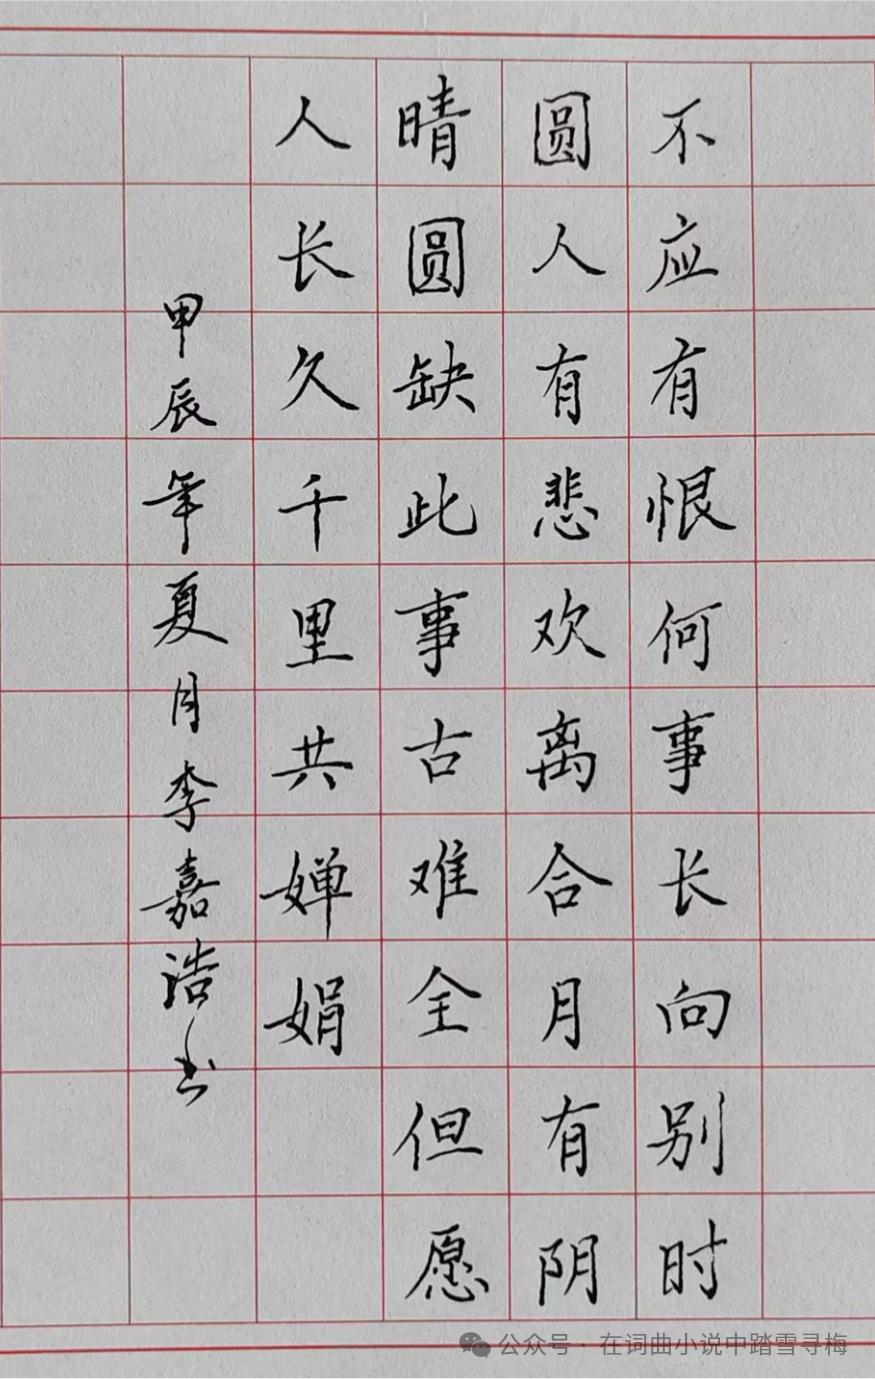 不应有恨何事长向别时
圆人有悲欢离合月有阴
晴圆缺此事古难全但愿
人长久千里共婵娟
甲辰年夏月李嘉浩书
公众号·在词曲小说中踏雪寻梅